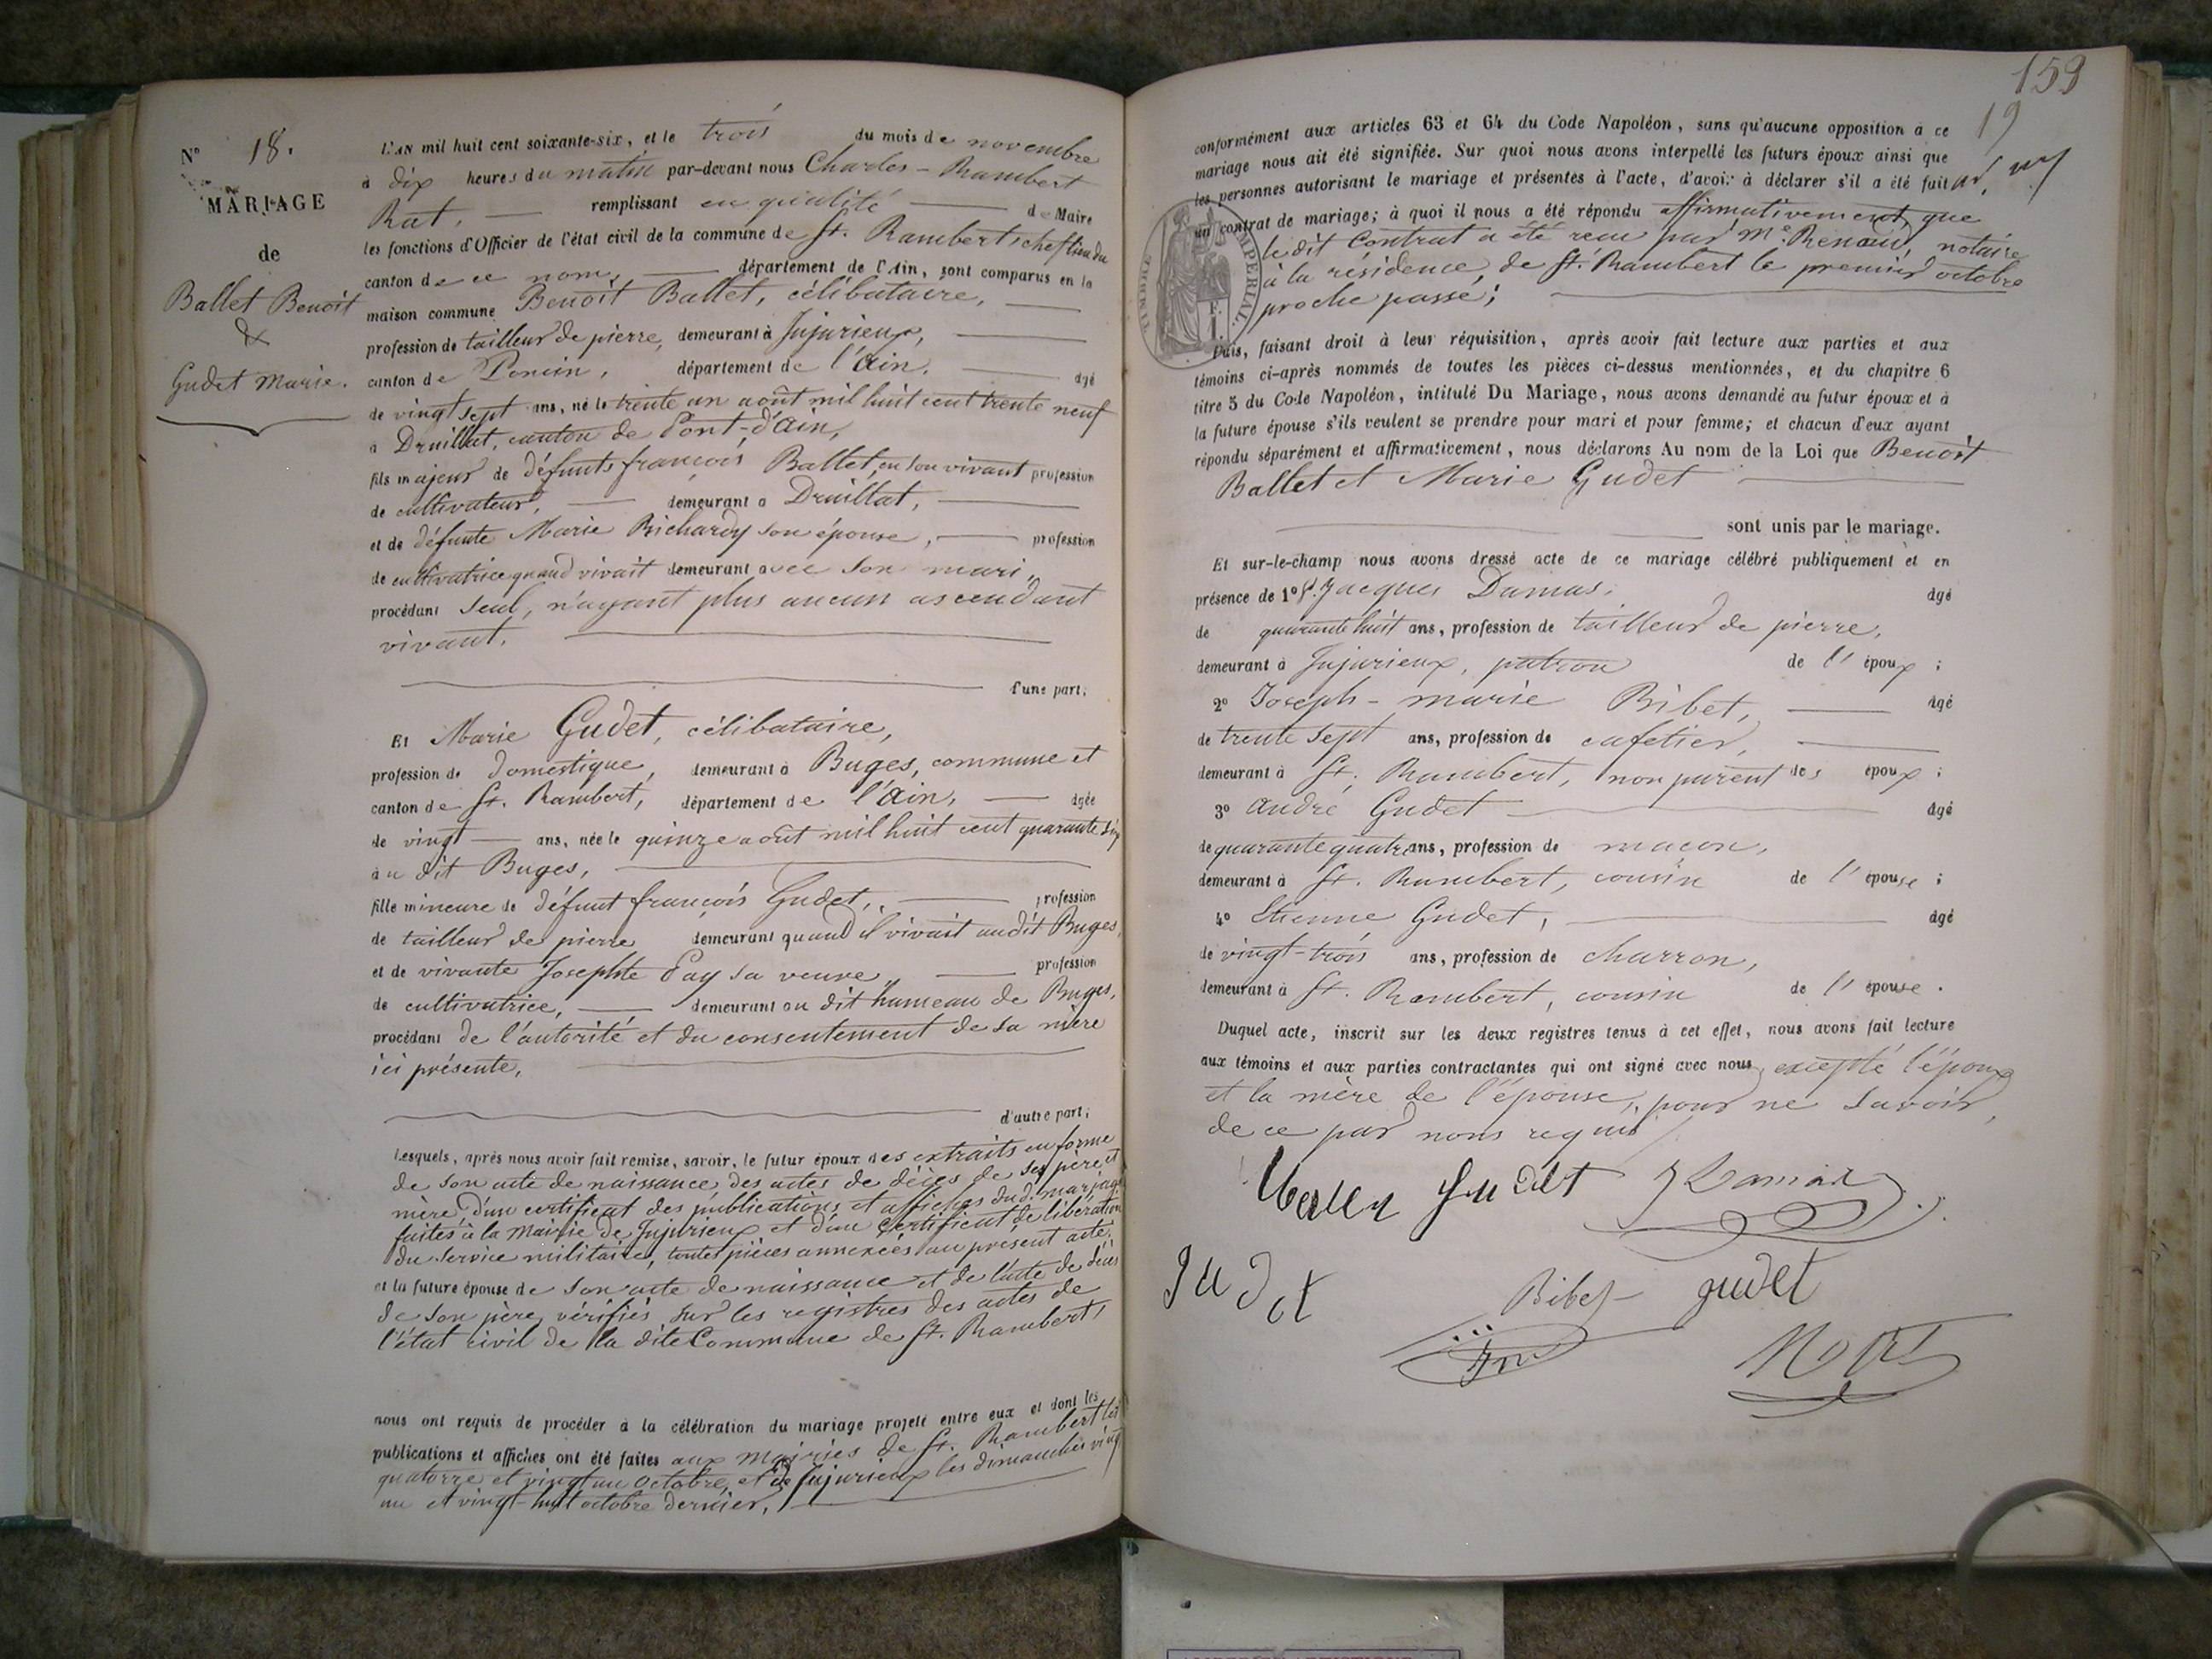 N° 18.
MARIAGE
de
Ballet Benoit
&
Gudet Marie.
L'AN mil huit cent soixante-six, et le trois du mois de novembre
à dix heures du matin par-devant nous Charles-Rambert
Rat, remplissant en qualité de Maire
les fonctions d'Officier de l'état civil de la commune de St. Rambert, chef lieu du
canton de ce nom, département de l'Ain, sont comparus en la
maison commune Benoit Ballet, célibataire,
profession de tailleur de pierre, demeurant à Jujurieux,
canton de Poncin, département de l'Ain, âgé
de vingt sept ans, né le trente un août mil huit cent trente neuf
à Druillat, canton de Pont-d'Ain,
fils majeur de défunts françois Ballet, en son vivant profession
de cultivateur, demeurant à Druillat,
et de défunte Marie Richardy son épouse, profession
de cultivatrice quand vivait demeurant avec son mari,
procédant seul, n'ayant plus aucun ascendant
vivant.
d'une part;
Et Marie Gudet, célibataire,
profession de domestique, demeurant à Buges, commune et
canton de St. Rambert, département de l'Ain, âgée
de vingt ans, née le quinze août mil huit cent quarante six
au dit Buges,
fille mineure de défunt françois Gudet, profession
de tailleur de pierre demeurant quand il vivait audit Buges,
et de vivante Josephte Pay sa veuve, profession
de cultivatrice, demeurant au dit hameau de Buges,
procédant de l'autorité et du consentement de sa mère
ici présente,
d'autre part;
Lesquels, après nous avoir fait remise, savoir, le futur époux des extraits en forme
de son acte de naissance, des actes de décès de ses père et
mère, d'un certificat des publications et affiches dud. mariage
faites à la Mairie de Jujurieux et d'un certificat de libération
du service militaire, toutes pièces annexées au présent acte,
et la future épouse de son acte de naissance et de l'acte de décès
de son père, vérifiés sur les registres des actes de
l'état civil de la dite Commune de St. Rambert,
nous ont requis de procéder à la célébration du mariage projeté entre eux et dont les
publications et affiches ont été faites aux Mairies de St. Rambert les
quatorze et vingt un octobre, et de Jujurieux les dimanches vingt
un et vingt-huit octobre dernier,
159
19
conformément aux articles 63 et 64 du Code Napoléon, sans qu'aucune opposition à ce
mariage nous ait été signifiée. Sur quoi nous avons interpellé les futurs époux ainsi que
les personnes autorisant le mariage et présentes à l'acte, d'avoir à déclarer s'il a été fait
un contrat de mariage; à quoi il nous a été répondu affirmativement, que
le dit Contrat a été reçu par Me. Renaud, notaire
à la résidence de St. Rambert le premier octobre
proche passé;
TIMBRE IMPERIAL
Puis, faisant droit à leur réquisition, après avoir fait lecture aux parties et aux
témoins ci-après nommés de toutes les pièces ci-dessus mentionnées, et du chapitre 6
titre 5 du Code Napoléon, intitulé Du Mariage, nous avons demandé au futur époux et à
la future épouse s'ils veulent se prendre pour mari et pour femme; et chacun d'eux ayant
répondu séparément et affirmativement, nous déclarons Au nom de la Loi que Benoit
Ballet et Marie Gudet
sont unis par le mariage.
Et sur-le-champ nous avons dressé acte de ce mariage célébré publiquement et en
présence de 1° Jacques Damas, âgé
de quarante huit ans, profession de tailleur de pierre,
demeurant à Jujurieux, patron de l'époux;
2° Joseph-marie Bibet, âgé
de trente sept ans, profession de cafetier,
demeurant à St. Rambert, non parent des époux;
3° André Gudet âgé
de quarante quatre ans, profession de maçon,
demeurant à St. Rambert, cousin de l'épouse;
4° Etienne Gudet, âgé
de vingt-trois ans, profession de charron,
demeurant à St. Rambert, cousin de l'épouse.
Duquel acte, inscrit sur les deux registres tenus à cet effet, nous avons fait lecture
aux témoins et aux parties contractantes qui ont signé avec nous, excepté l'époux
et la mère de l'épouse, pour ne savoir,
de ce par nous requis
gudet J Damas
gudet
Bibet gudet